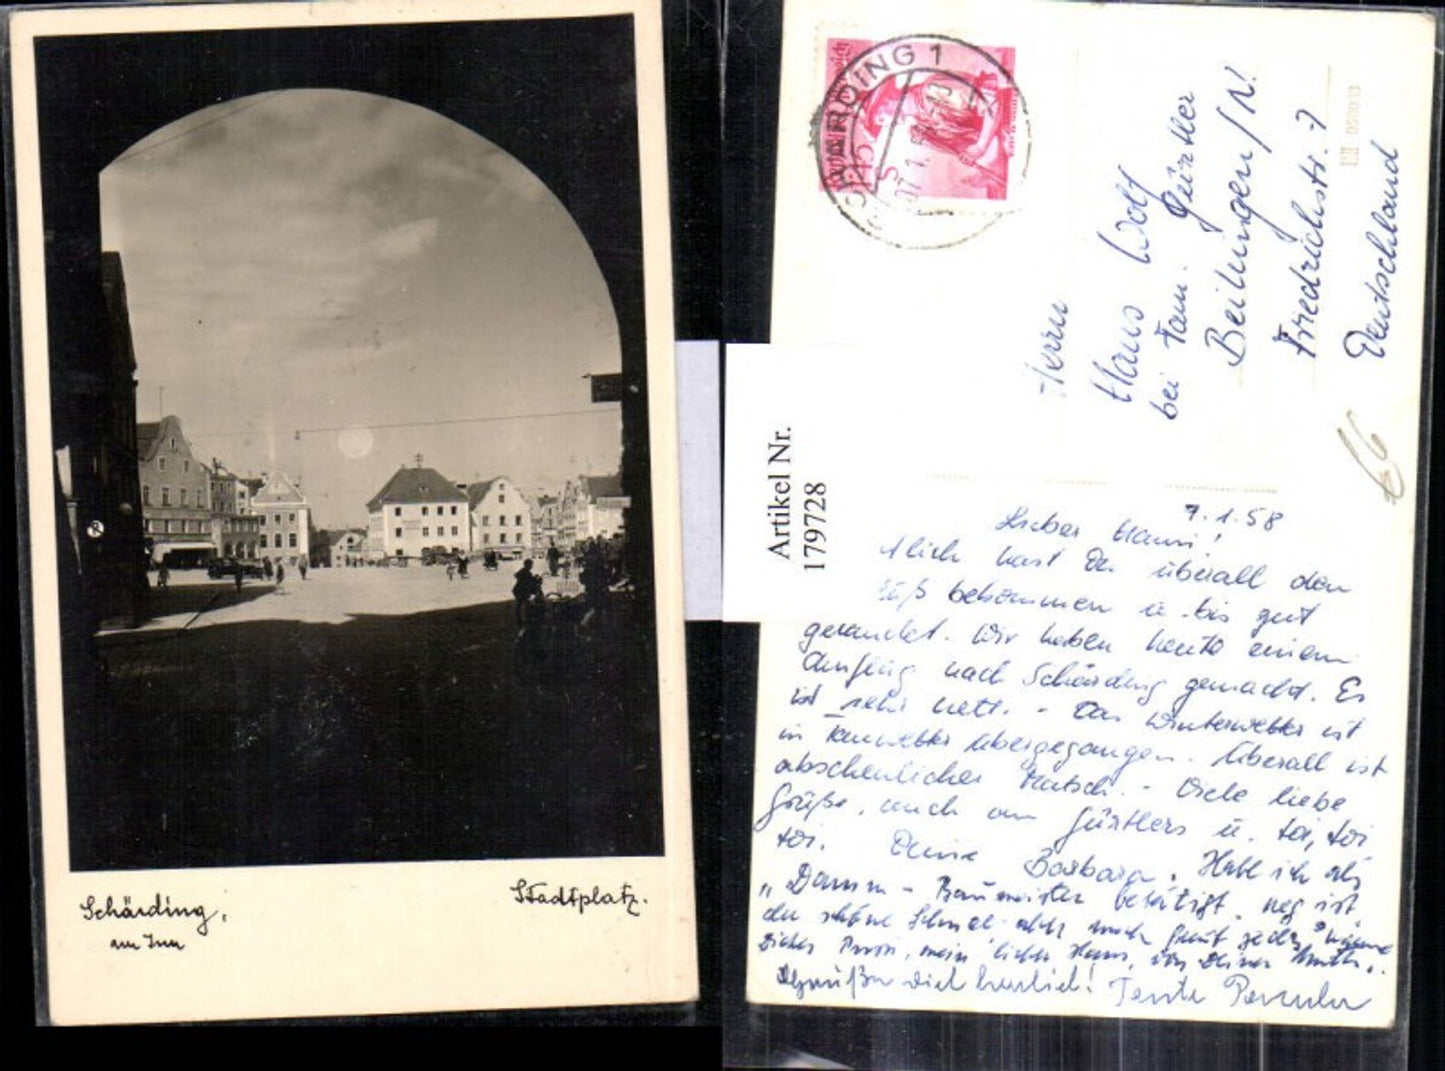 Schärding,
am Inn
Stadtplatz.
Artikel Nr.
179728
SCHÄRDING 1
Herrn
Hans Wolf
bei Fam. Gürtler
Beilngen/N.
Friedrichstr. 7
Deutschland
66
7.1.58
Lieber Hansi!
hast Du überall den
bekommen u. bis gut
Wir haben heute einen
Ausflug nach Schärding gemacht. Es
ist sehr nett. - Das Winterwetter ist
in Tauwetter übergegangen. Überall ist
abscheulicher Matsch. - Viele liebe
Grüße, auch an Gürtlers u. toi, toi
toi. Deine Barbara. Habe ich als
"Damm-Baumeister betätigt, weg ist
der schöne Schnee
mein lieber Hans, von Deiner
Dich herzlich! Tante